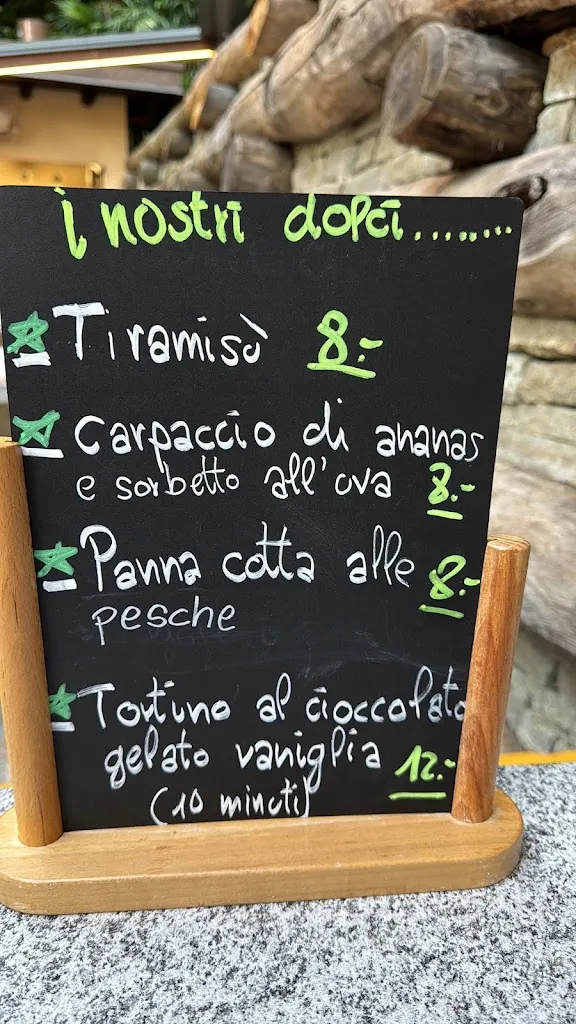 i nostri dolci........
Tiramisù 8.-
Carpaccio di ananas
e sorbetto all'uva 8.-
Panna cotta alle 8.-
pesche
Tortino al cioccolato
gelato vaniglia 12.-
(10 minuti)